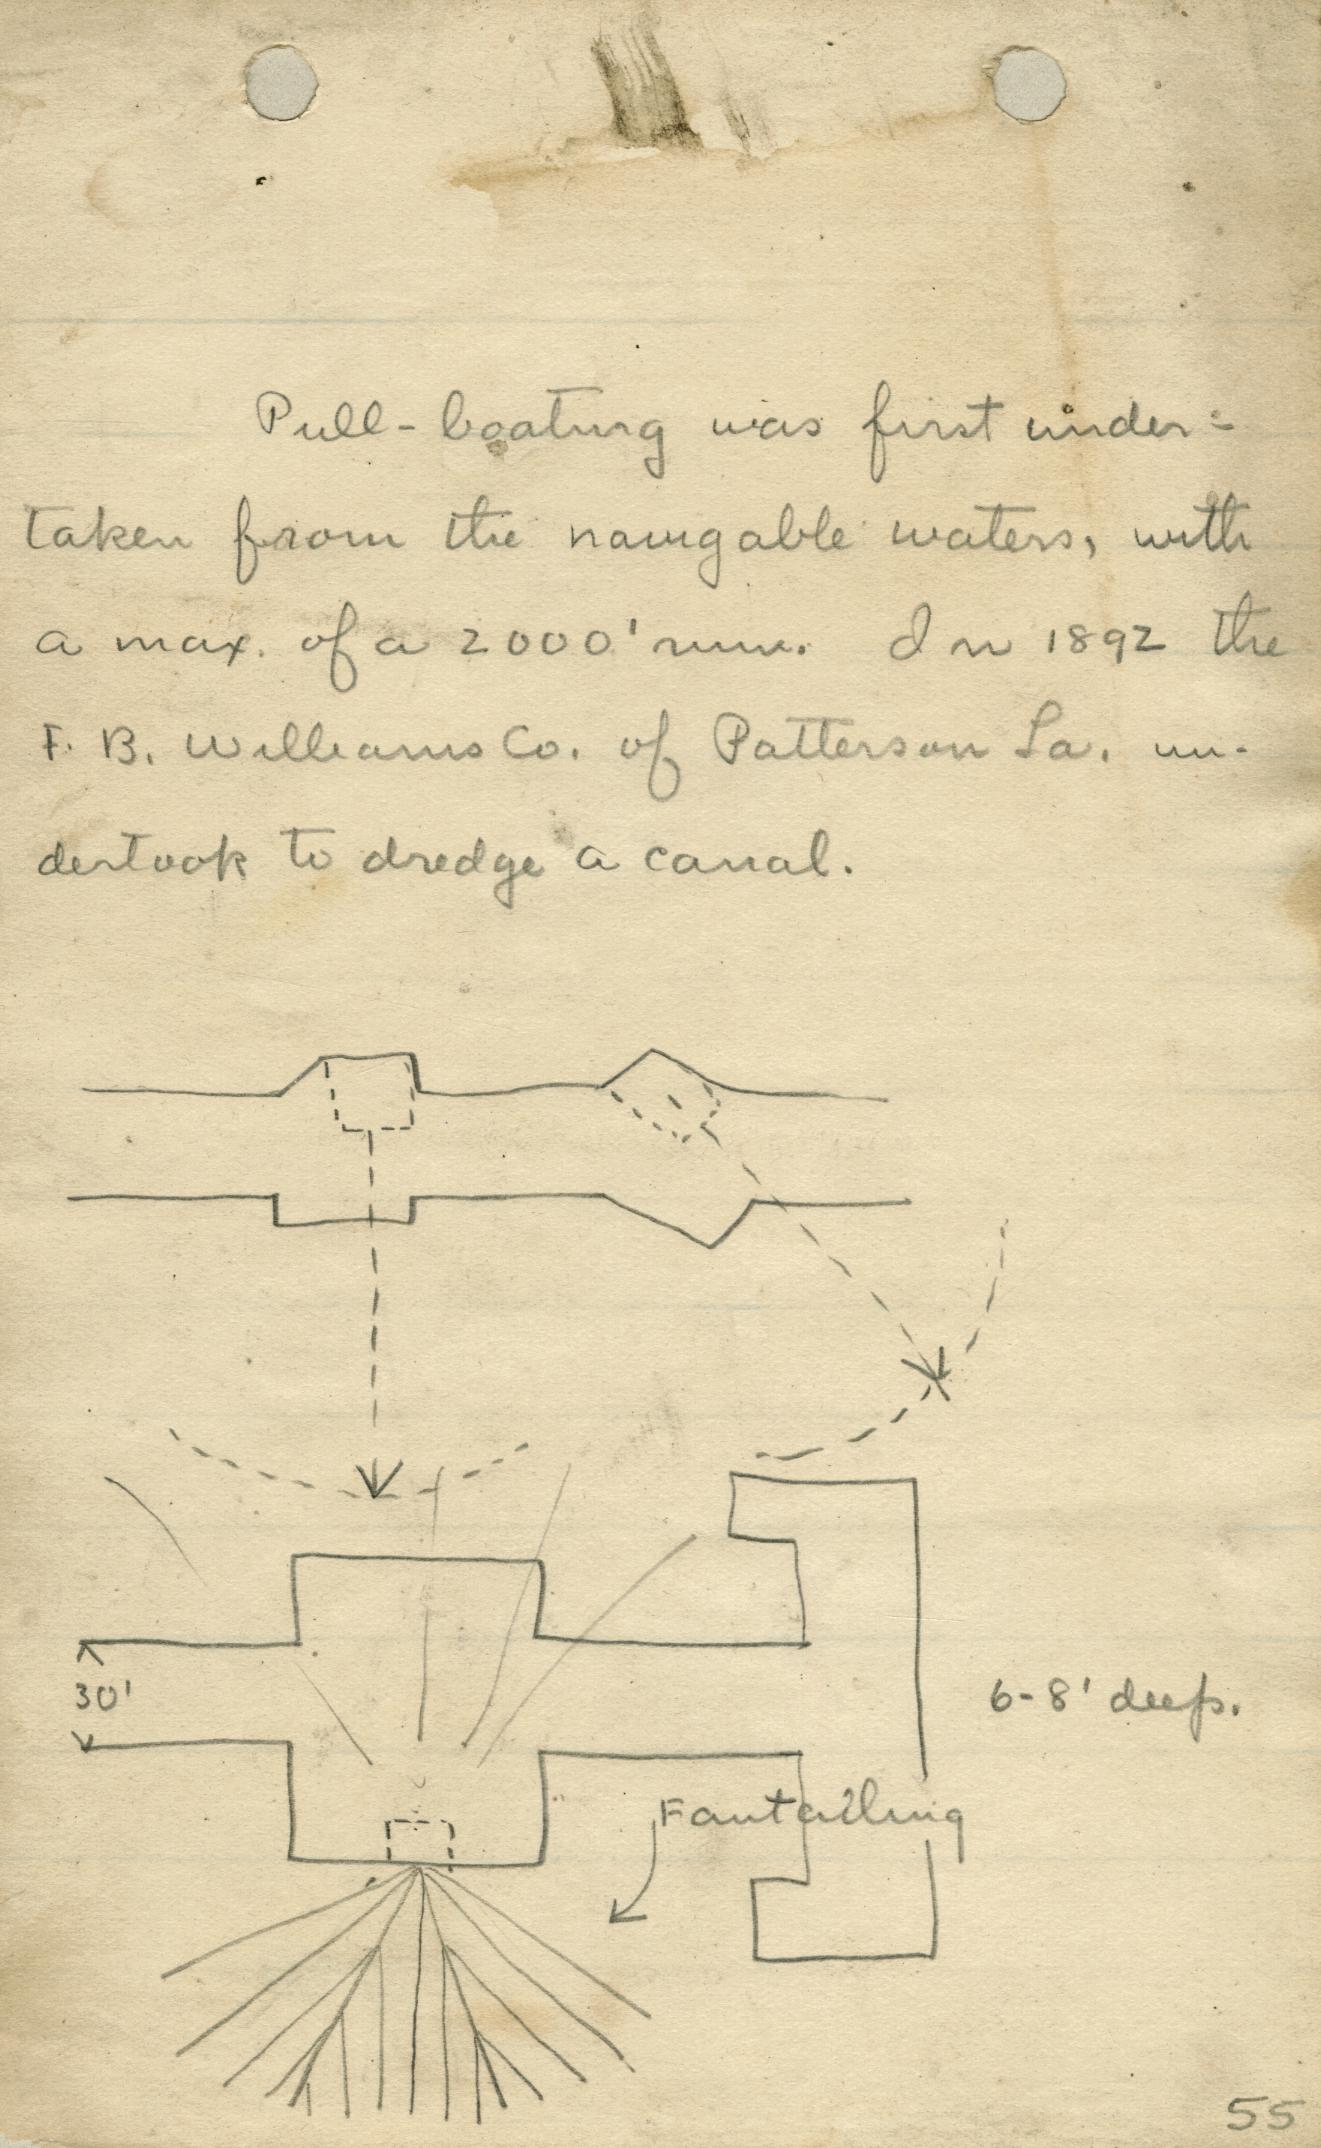 Pull-boating was first under-
taken from the navigable waters, with
a max. of a 2000' run. In 1892 the
F. B. Williams Co. of Patterson La. un-
dertook to dredge a canal.
30'
6-8' deep.
Fantailing
55